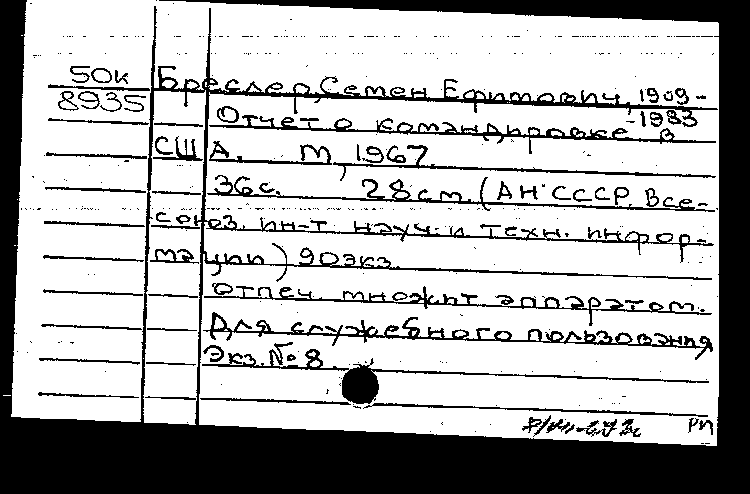 50к Бреслер, Семен Ефимович, 1909-
8935 -1983
Отчет о командировке в
США. М, 1967.
36с. 28см. (АН СССР. Все-
союз. ин-т науч. и техн. инфор-
мации) 90экз.
Отпеч. множит аппаратом.
Для служебного пользования
Экз. № 8
РП